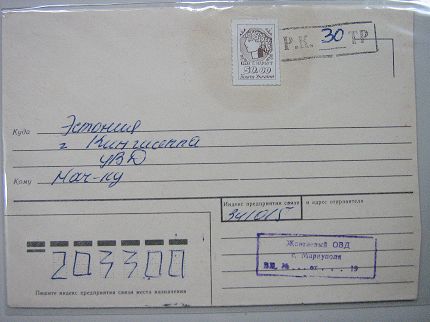 50.00
Пошта України
Р.К. 30 ТР
Куда Эстония
г Кингисеппа
УВД
Кому Нач-ку
Индекс предприятия связи и адрес отправителя
341015
Жовтневый ОВД
г. Мариуполя
от 19
203300
Пишите индекс предприятия связи места назначения